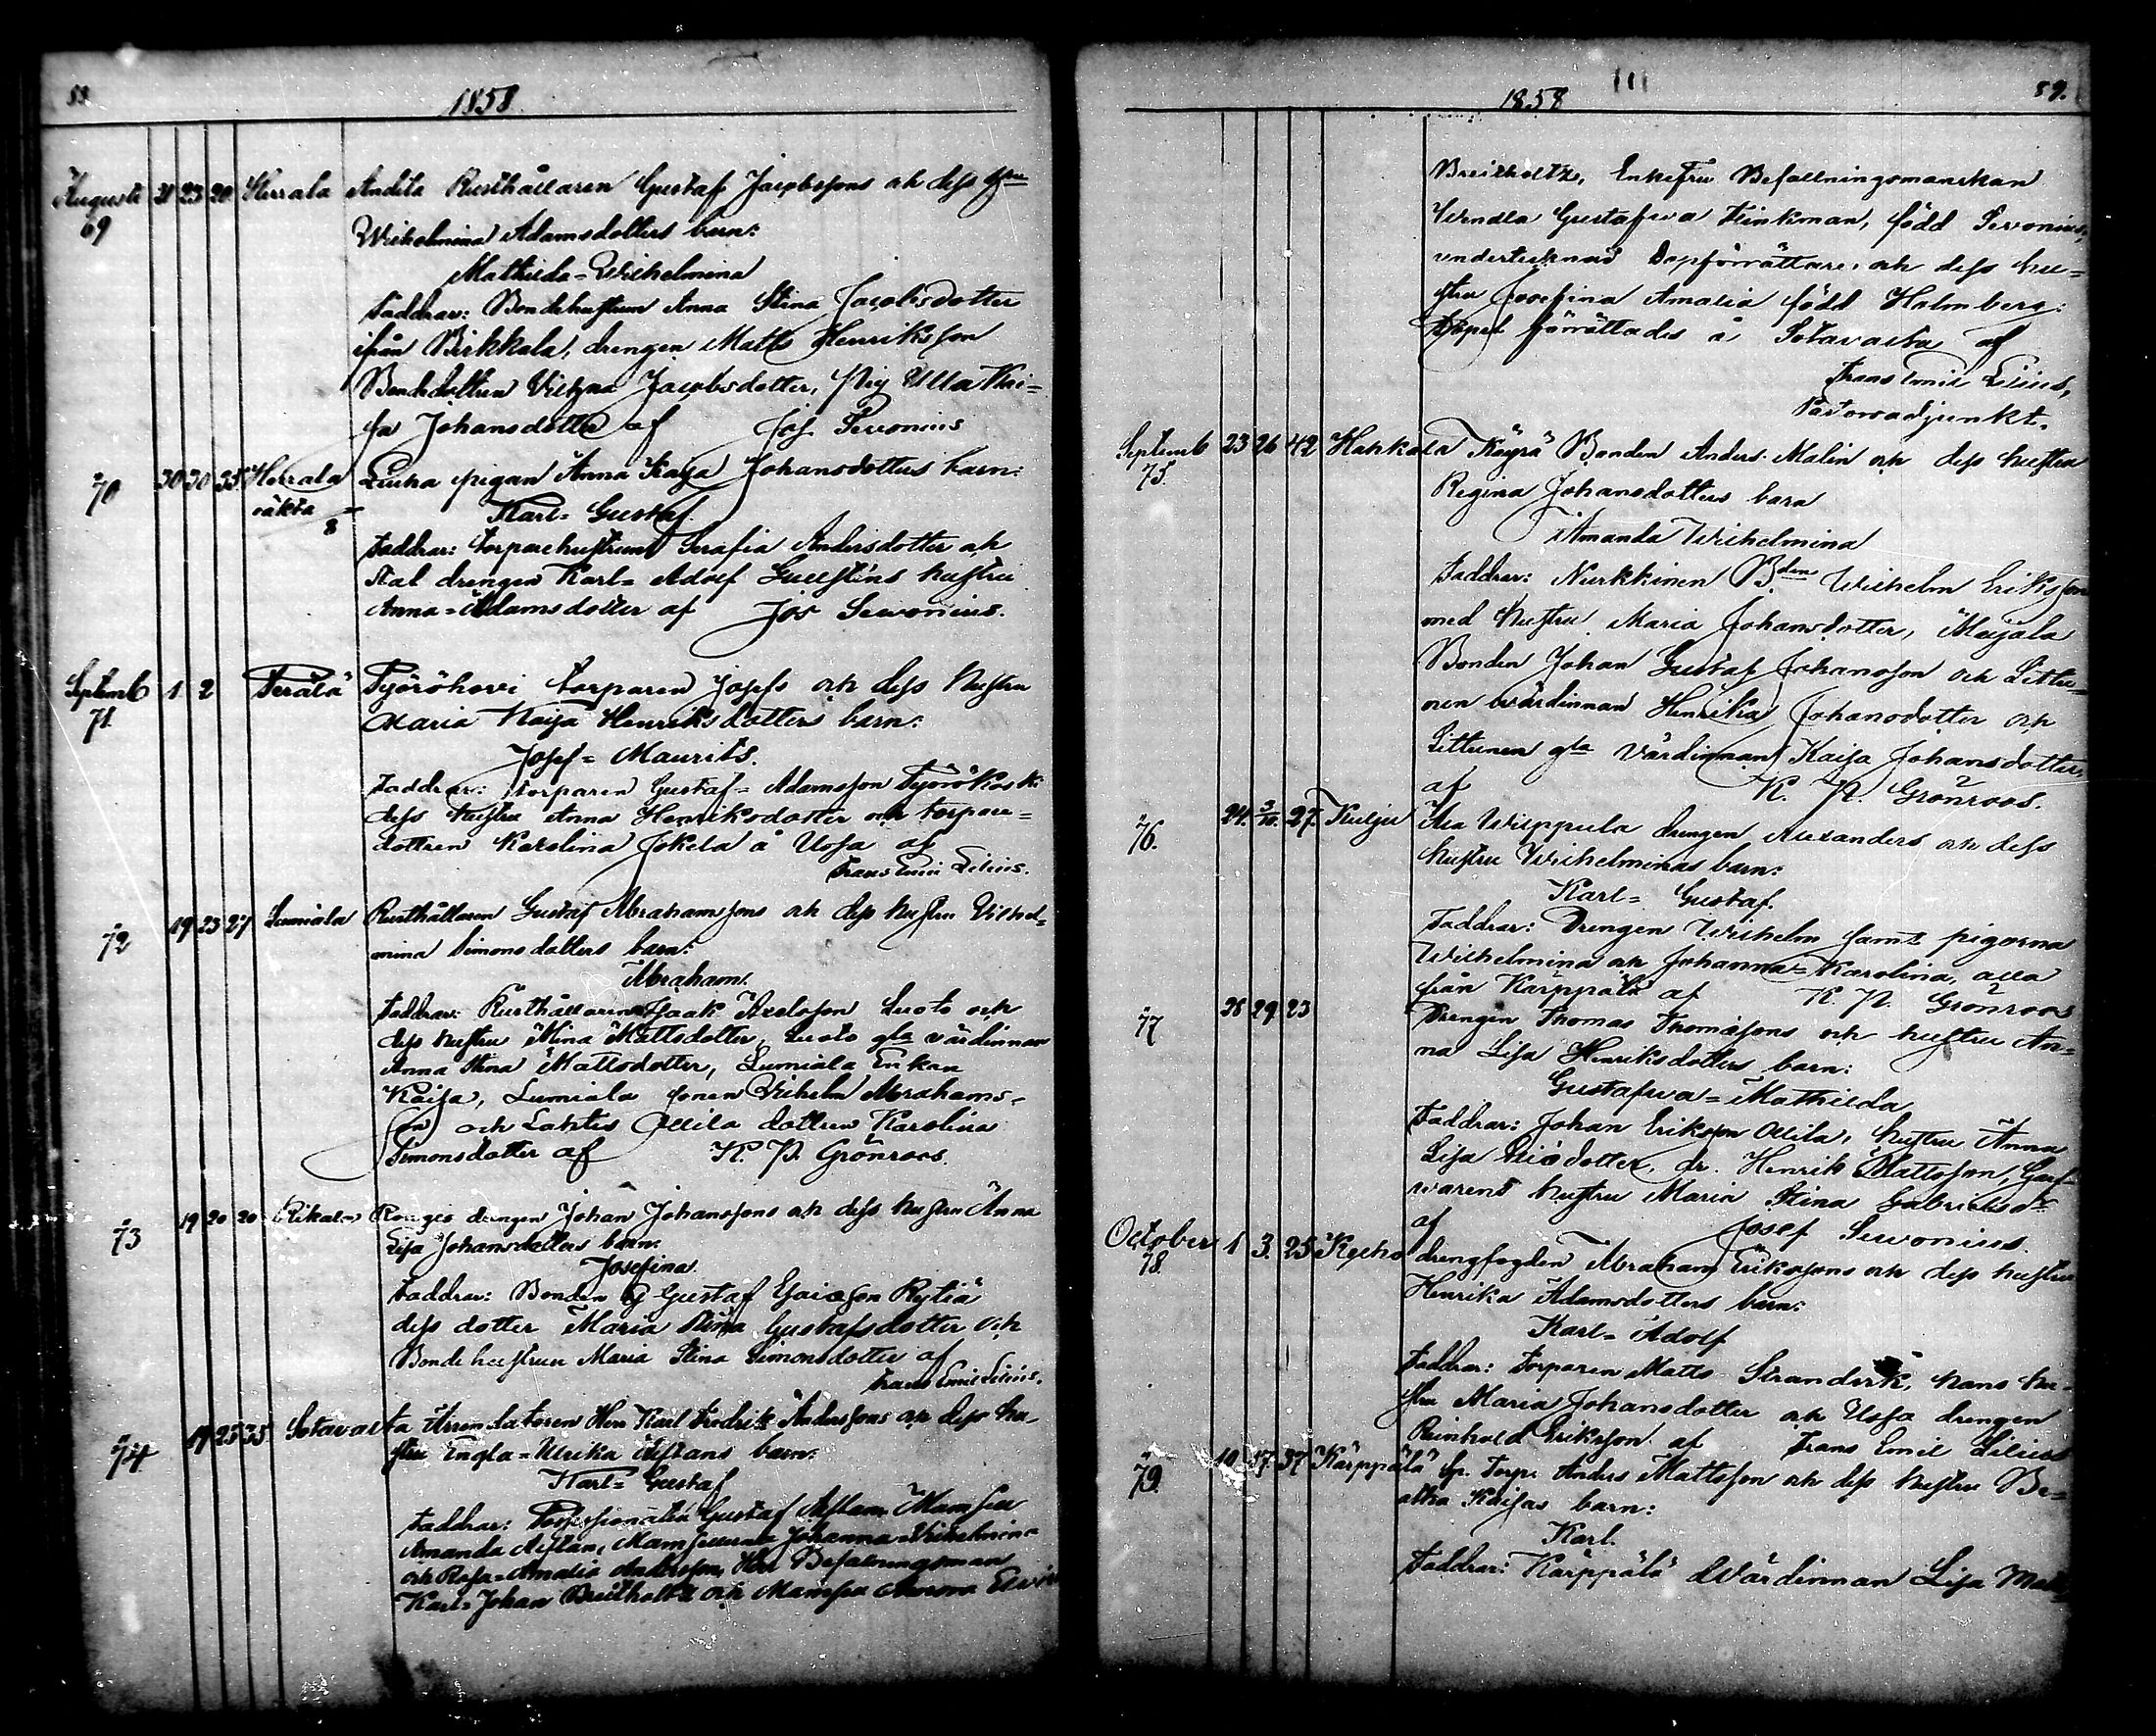 58.
1858.
Augusti 21 23 20 Herrala Andila Rusthållaren Gustaf Jacobssons och dess hru
69
Wilhelmina Adamsdotters barn:
Mathilda=Wilhelmina
Faddrar: Bondehustrun Anna Stina Jacobsdotter
ifrån Birkkala, drengen Matts Henriksson
Bondedottren Jacobsdotter, Pig Ulla Kai=
sa Johansdotter af Jos. Sevonius
70 30 30 35 Herrala Enka pigan Anna Kaisa Johansdotters barn:
oäkta
8
Karl= Gustaf.
Faddrar: torparehustrun Serafia Andersdotter och
Stal drengen Karl= Adolf Gullsténs hustru
Anna=Adamsdotter af Jos Sewonius.
Septemb 1 2 Perälä Pyöröhovi torparen Josefs och dess hustru
71.
Maria Kaisa Henriksdotters barn:
Josef= Maurits.
Faddrar: torparen Gustaf= Adamsson Pyörökoski
dess hustru Anna Henriksdotter och torpare=
dottren Karolina Jokela å Uofa af
Frans Emil Lilius.
72 19 23 27 Lumiala Rusthållaren Gustaf Abrahamssons och dess hustru Vilhel=
mina Simonsdotters barn:
Abraham.
Faddrar: Rusthållaren Isaak Axelsson Luoto och
dess hustru Mina Mattsdotter, Luoto gla värdinnan
Anna Stina Mattsdotter, Lumiala Enkan
Kaisa, Lumiala sonen Vilhelm Abrahams=
son och Lahtis Ollila dottren Karolina
Simonsdotter af K. P. Grönroos.
73 19 20 20 Rikala drengen Johan Johanssons och dess hustru Anna
Lisa Johansdotters barn:
Josefina.
Faddrar: Bonden G Gustaf Esaiasson Rytiä
dess dotter Maria Stina Gustafsdotter och
Bonde hustrun Maria Stina Simonsdotter af
Frans Emil Lilius.
74 19 25 35. Sotavalta Arrendatoren Herr Karl Fredrik Anderssons och dess hu=
stru Engla=Ulrika Aeftans barn:
Karl= Gustaf
Faddrar: Possessionaten Gustaf Aeftan, Mamsell
Amanda Aeftan, Mamsellerna Johanna=Wilhelmina
och Rosa=Amalia Andersson, Herr Befallningsman
Karl=Johan Breitholtz och Mamsell Aurora
1858
59.
Breitholtz, Enkefru Befallningsmanskan
Wendla Gustafwa Finkman, född Sevonius,
undertecknad Dopförrättare, och dess hu=
stru Josefina Amalia född Holmberg.
Dopet förrättades å Sotavalta af
Frans Emil Lilius,
Pastorsadjunkt.
Septemb 23 26 42 Hahkala Käyrä Bonden Anders Malin och dess hustru
75.
Regina Johansdotters barn
Amanda Wilhelmina
Faddrar: Nurkkinen Bden Wilhelm Eriksson
med hustru Maria Johansdotter, Maijala
Bonden Johan Gustaf Johansson och Littu=
nen wärdinnan Henrika Johansdotter och
Littunen gla Värdinnan Kaisa Johansdotter
af K. P. Grönroos.
76. 24. 3/10. 27. Kulju Ala Wilppula drengen Alexanders och dess
hustru Wilhelminas barn:
Karl= Gustaf.
Faddrar: Drengen Wilhelm samt pigorna
Wilhelmina och Johanna=Karolina, alla
från Kärppälä af K. P. Grönroos
77 28 29 23 Drengen Thomas Thomassons och hustru An=
na Lisa Henriksdotters barn:
Gustafwa=Mathilda
Faddrar: Johan Eriksson Ollila, hustru Anna
Lisa dotter, dr. Henrik Mattsson, Garf=
warens hustru Maria Stina Gabrielsdr
af Josef Sewonius.
October 1 3. 25 Keiho drengfogden Abraham Erikssons och dess hustru
78.
Henrika Adamsdotters barn:
Karl= Adolf
Faddrar: Torparen Matts hans hu=
stru Maria Johansdotter och Uofa drengen
Reinhold Eriksson af Frans Emil Lilius
79. 10 17 37 Kärppälä Sp. Torp. Anders Mattsson och dess hustru Be=
atha Kaisas barn:
Karl.
Faddrar: Kärppälä Wärdinnan Lisa Matts=